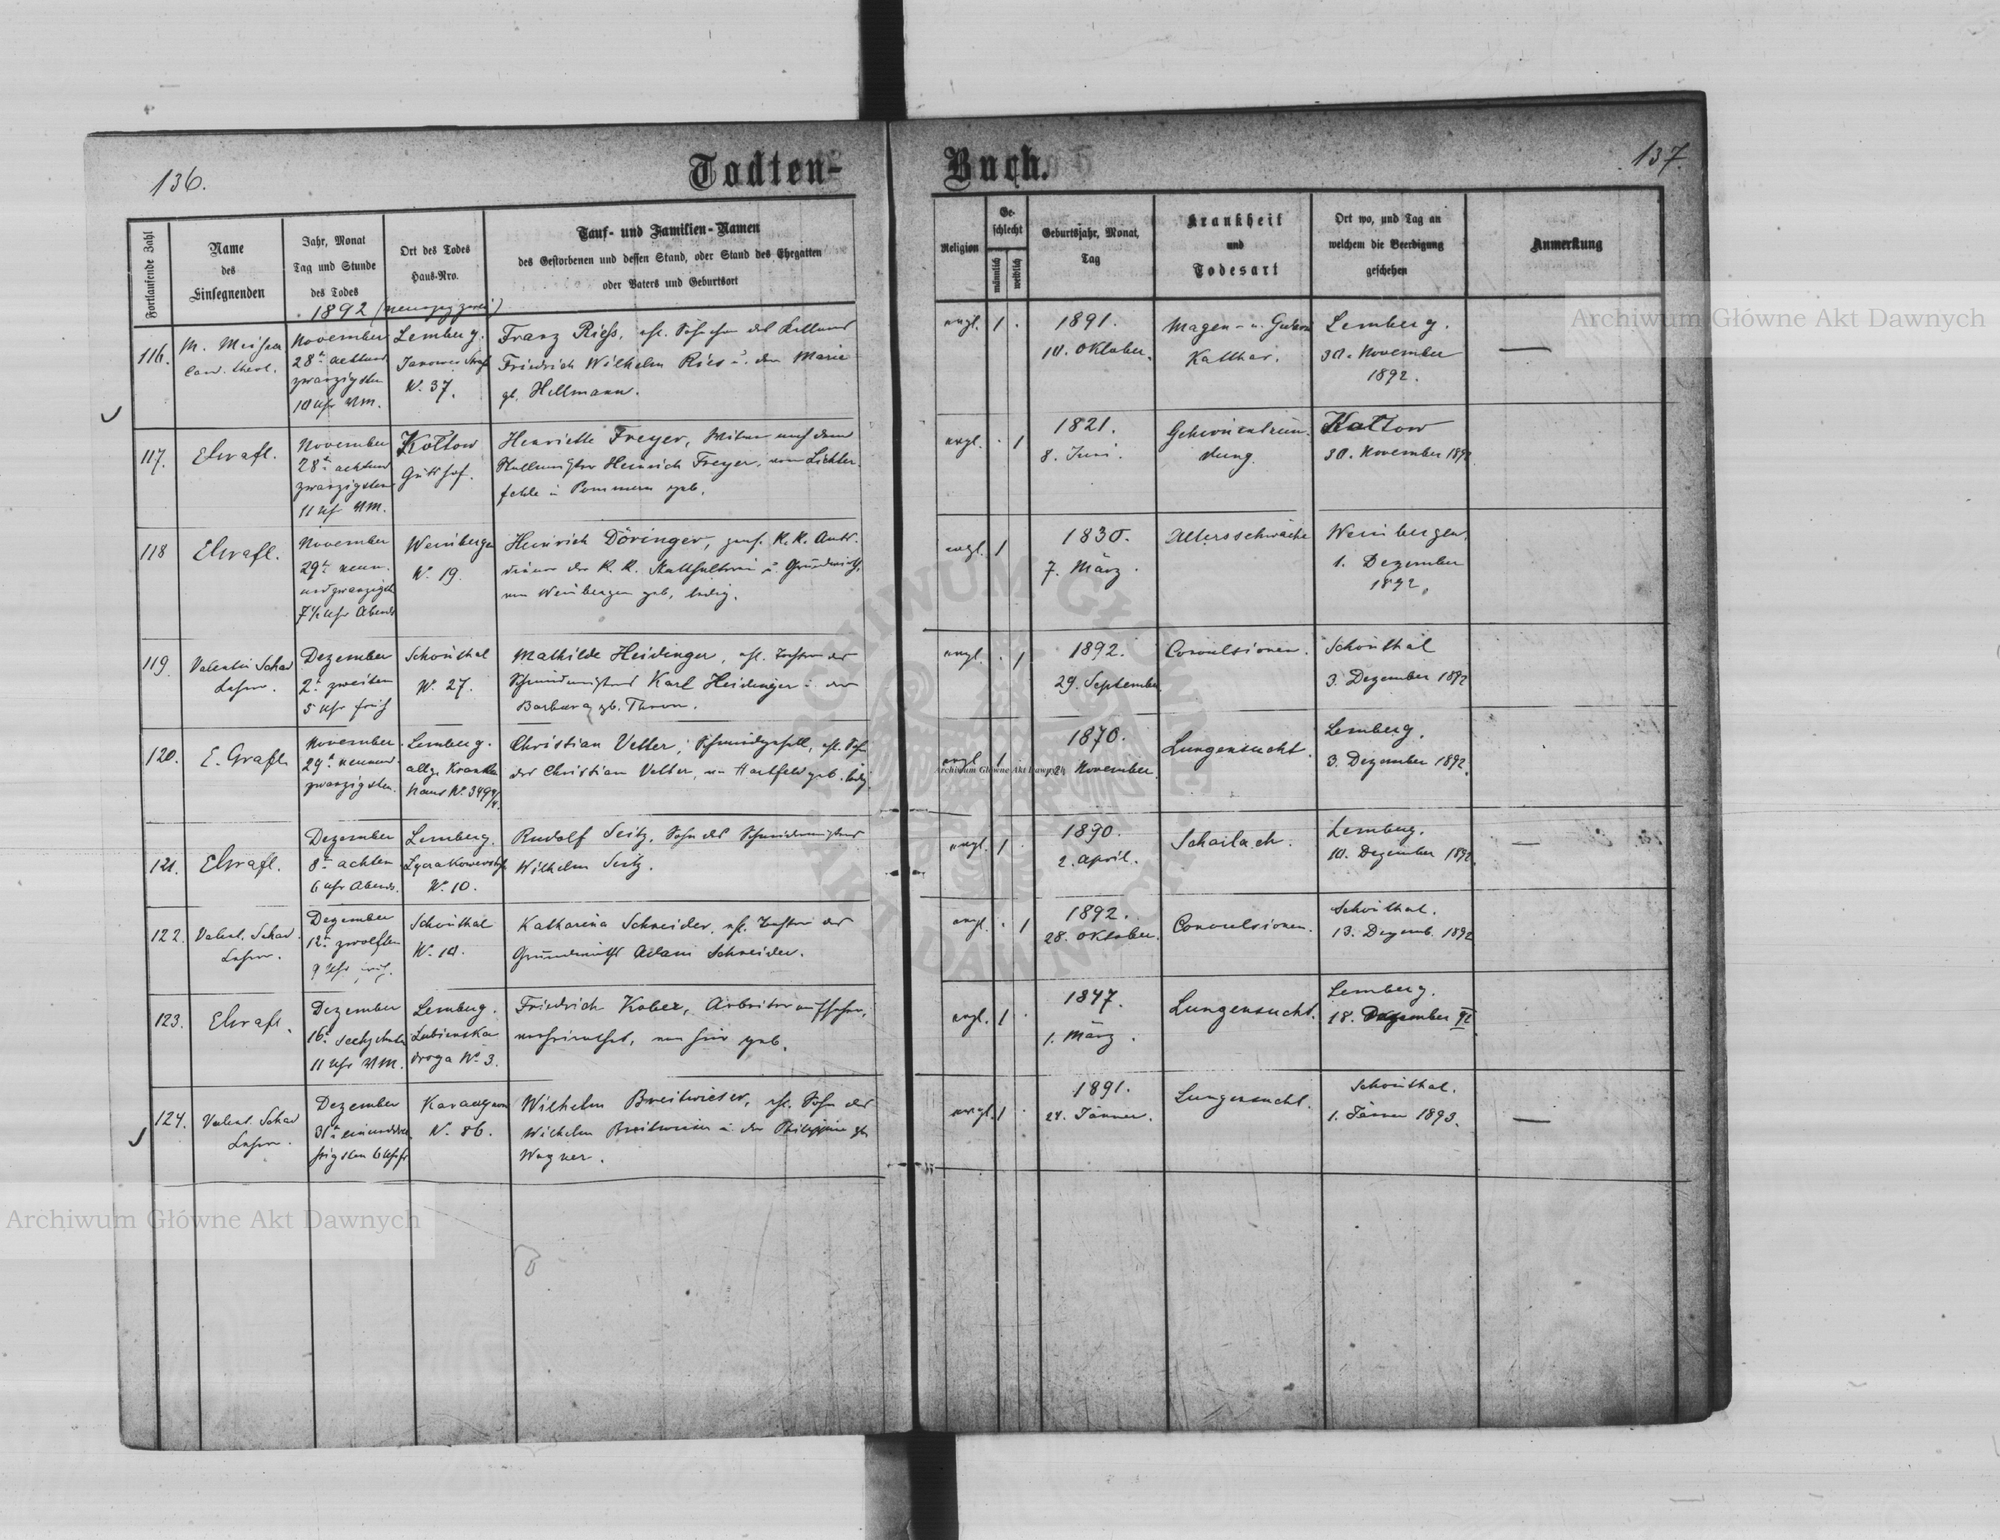 136.
Todten-
Fortlaufende Zahl
Name
des
Einsegnenden
Jahr, Monat
Tag und Stunde
des Todes
1892 (neunzig zwei)
Ort des Todes
Haus-Nro.
Tauf- und Familien-Namen
des Gestorbenen und dessen Stand, oder Stand des Ehegatten
oder Vaters und Geburtsort
116.
cand. theol.
November
28te achtund
zwanzigsten
10 Uhr VM.
Lemberg.
N. 37.
Franz Riess, ehl. Söhnchen des Kellners
Friedrich Wilhelm Riess u. der Marie
gb. Hellmann.
117.
November
28te achtund
zwanzigsten
11 Uhr VM.
Kottow
Gutshof.
Henriette Freyer, Witwe nach dem
Heinrich Freyer, von Lichten
felde in Pommern geb.
118
November
29te neun
undzwanzigsten
7½ Uhr Abends
Weinbergen
N. 19.
Heinrich Döringer, pens. K.K. Amts-
diener der K. K. Statthalterei u. Grundwirth,
von Weinbergen geb, ledig.
119.
Valentin Schad
Lehrer.
Dezember
2te zweiten
5 Uhr früh
Schönthal
N. 27.
Mathilde Heidinger, ehl. Tochter des
Schmiedmeisters Karl Heidinger u. der
Barbara gb. Thron.
120.
November
29te neunund
zwanzigsten.
Lemberg.
allg. Kranken
haus N. 349 2/4
Christian Vetter, Schmiedgesell, ehl. Sohn
des Christian Vetter, von Hartfeld geb. ledig.
121.
Dezember
8te achten
6 Uhr Abends.
Lemberg.
N. 10.
Rudolf Seitz, Sohn des Schmiedmeisters
Wilhelm Seitz.
122.
Valent. Schad
Lehrer.
Dezember
12te zwölften
9 Uhr früh.
Schönthal
N. 10.
Katharina Schneider, ehl. Tochter des
Grundwirths Adam Schneider.
123.
Dezember
16te sechzehnten
11 Uhr VM.
Lemberg.
Lubienska
droga N. 3.
Friedrich Kober, Arbeiteraufseher,
verheirathet, von hier geb.
124.
Valent. Schad
Lehrer.
Dezember
31te einunddrei
ßigsten 6 Uhr fr
N. 86.
Wilhelm Breitwieser, ehl. Sohn des
Wilhelm Breitwieser u. der Philippine gb.
Wagner.
Buch.
137.
Religion
Ge-
schlecht
männlich
weiblich
Geburtsjahr, Monat,
Tag
Krankheit
und
Todesart
Ort wo, und Tag an
welchem die Beerdigung
geschehen
Anmerkung
evgl. 1 .
1891.
10. Oktober.
Magen- u. Gedärm
Katthar.
Lemberg.
30. November
1892.
evgl. . 1
1821.
8. Juni.
Gehirnentzün-
dung.
Kottow
30. November 1892
evgl. 1
1830.
7. März.
Altersschwäche
Weinbergen.
1. Dezember
1892.
evgl. . 1
1892.
29. September
Convulsionen.
Schönthal
3. Dezember 1892
evgl. 1
1870.
November.
Lungensucht.
Lemberg.
3. Dezember 1892.
evgl. 1 .
1890.
2. April.
Scharlach.
Lemberg.
10. Dezember 1892.
evgl. . 1
1892.
28. Oktober.
Convulsionen.
Schönthal.
13. Dezemb. 1892
evgl. 1 .
1847.
1. März.
Lungensucht.
Lemberg.
18. Dezember 92
evgl. 1 .
1891.
24. Jänner.
Lungensucht.
Schönthal.
1. Jänner 1893.
Archiwum Główne Akt Dawnych
Archiwum Główne Akt Dawnych
Archiwum Główne Akt Dawnych
ARCHIWUM GŁÓWNE
AKT DAWNYCH